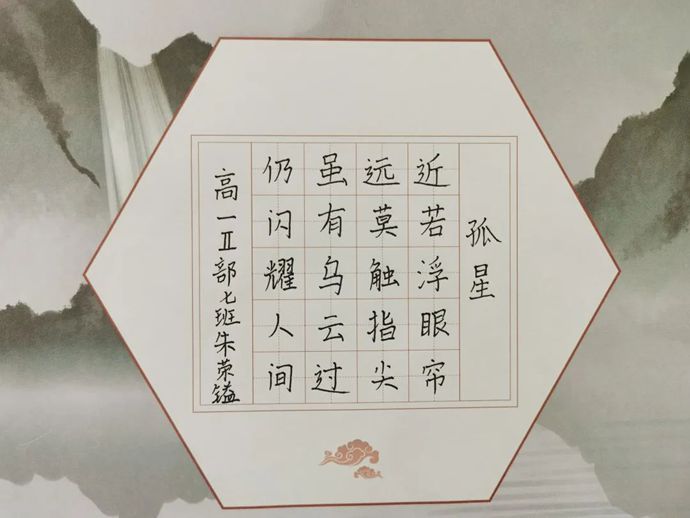 孤星
近若浮眼帘
远莫触指尖
虽有乌云过
仍闪耀人间
高一Ⅱ部七班朱荣镒